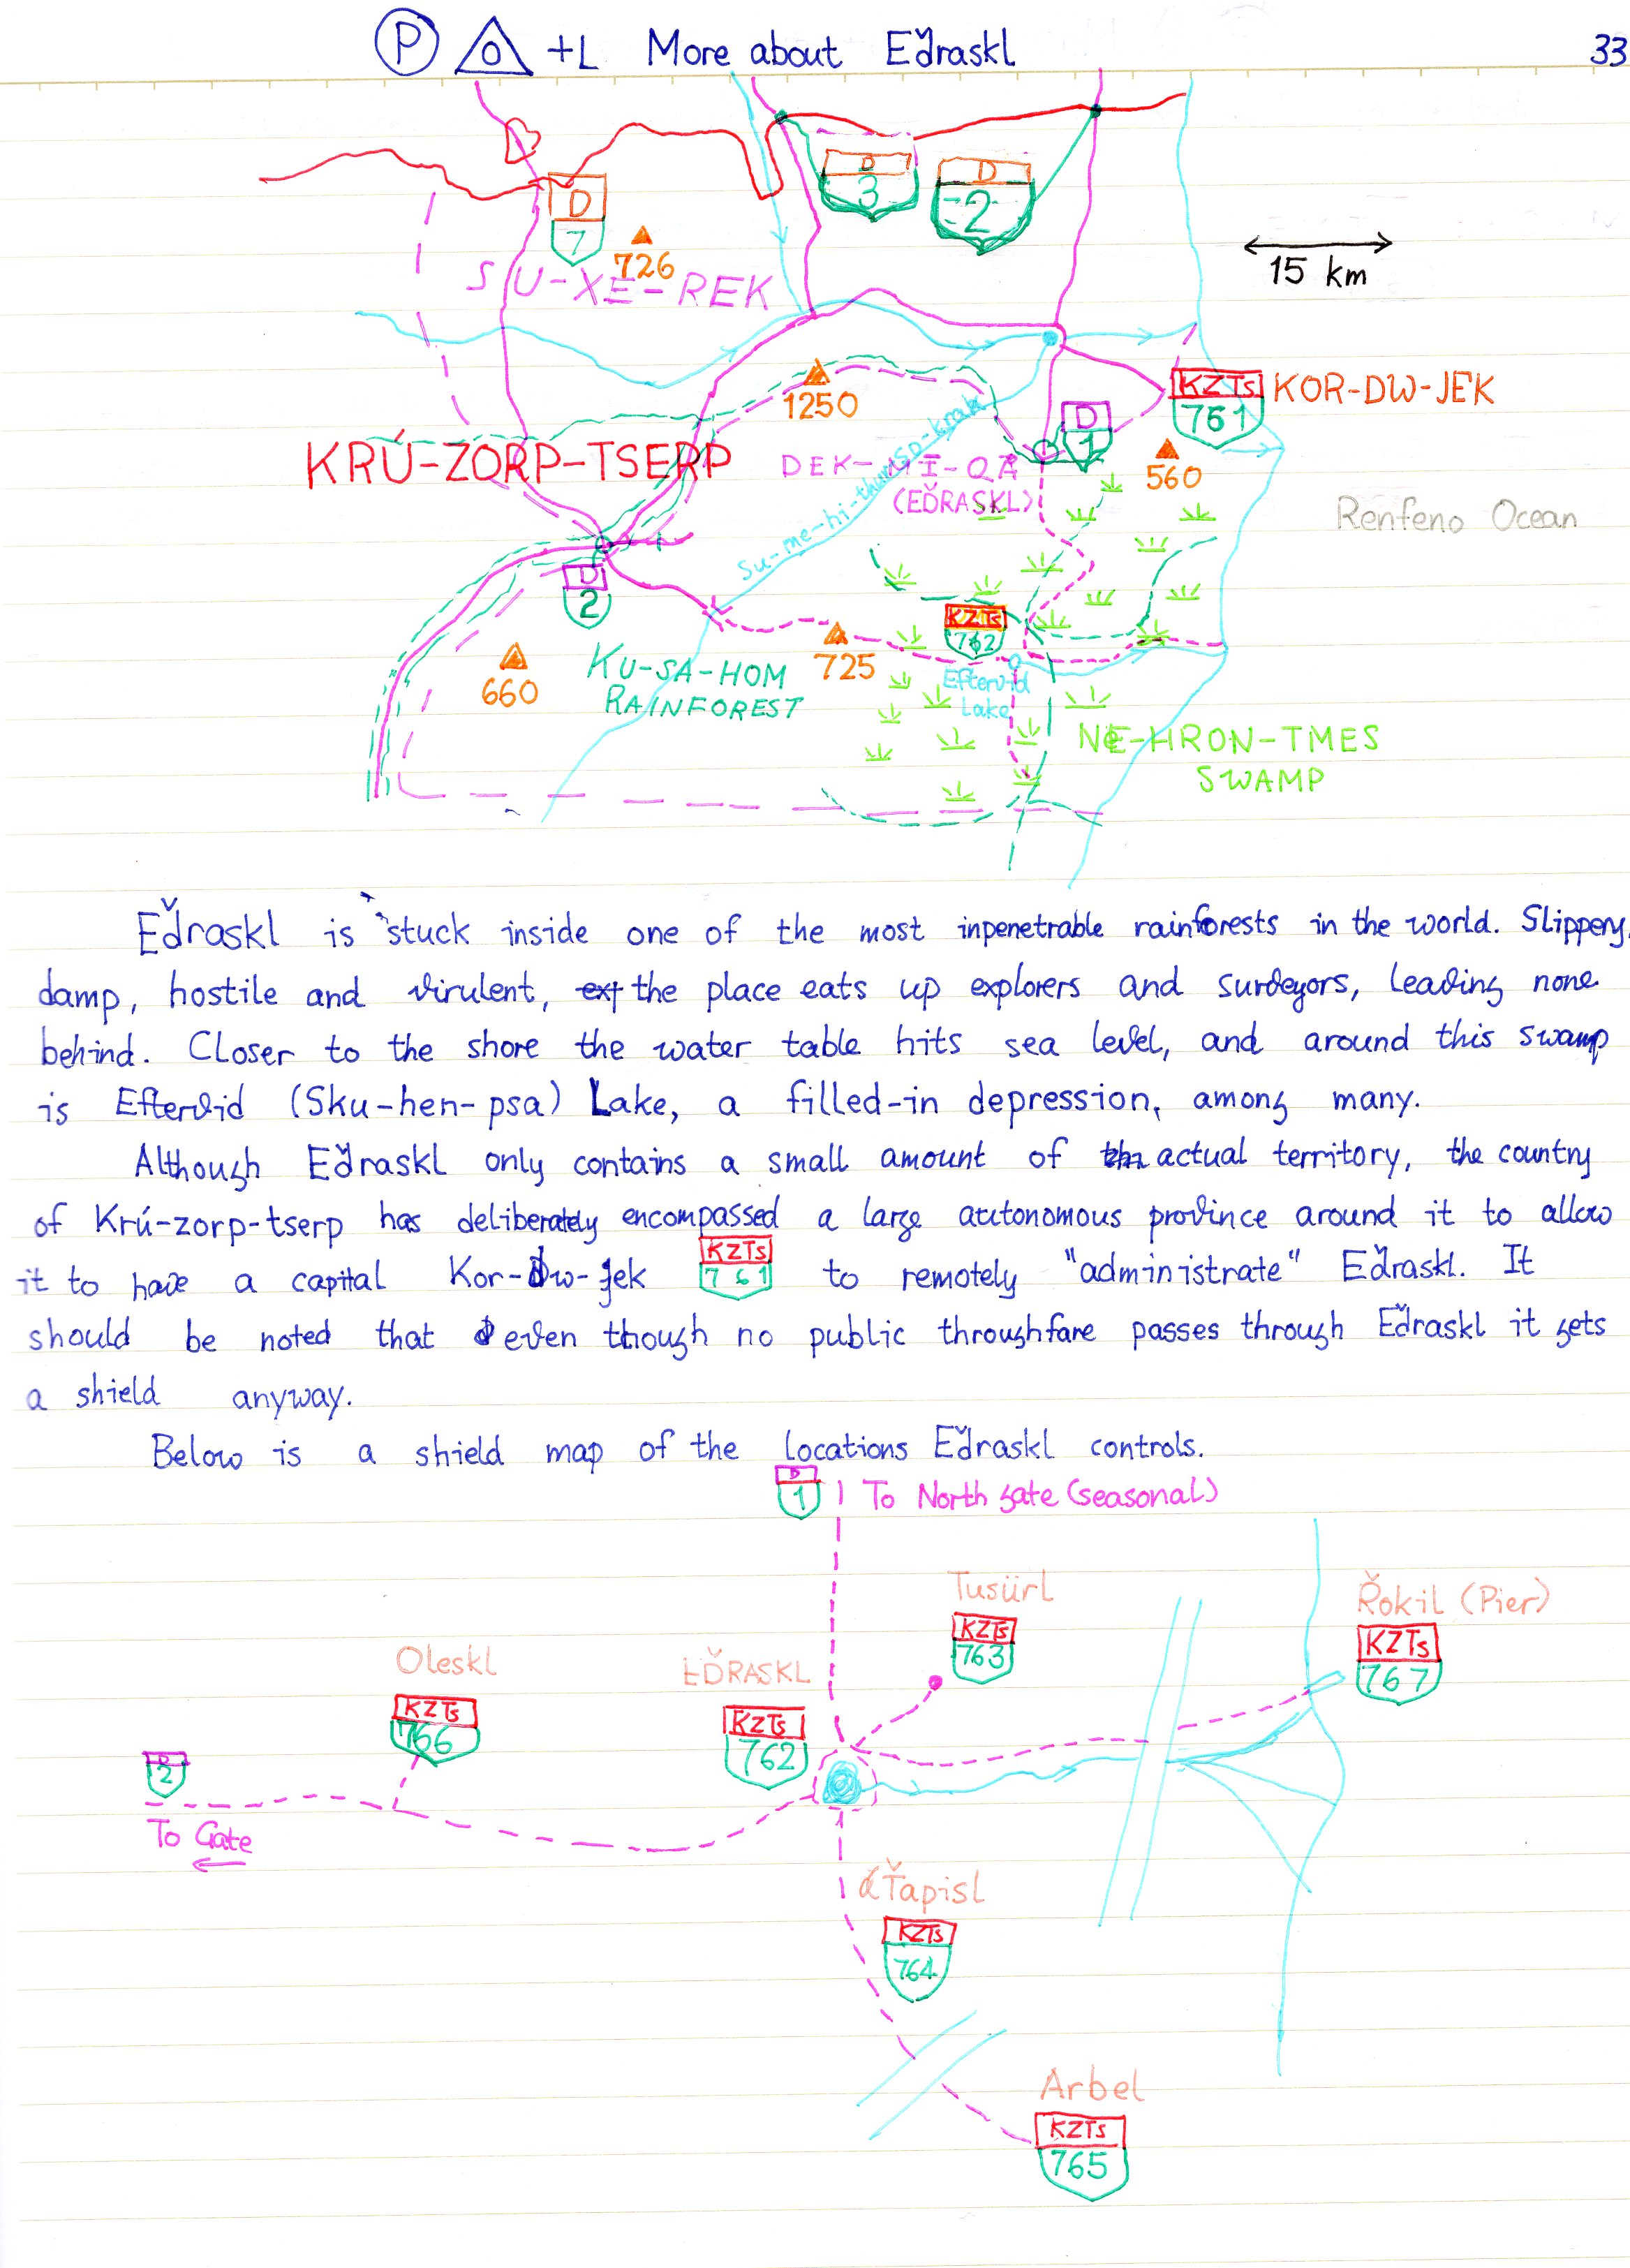 P O +L More about Eďraskl 33
D 3
D 2
D 7
726
SU-XE-REK
15 km
1250
KZTs 761
KOR-DW-JEK
D 1
KRÚ-ZORP-TSERP
DEK-MI-QÄ
(EĎRASKL)
560
Renfeno Ocean
Su-me-hi-thur
D 2
KZTs 762
725
660
KU-SA-HOM
RAINFOREST
Eftervid
Lake
NE-HRON-TMES
SWAMP
Eďraskl is stuck inside one of the most inpenetrable rainforests in the world. Slippery,
damp, hostile and virulent, the place eats up explorers and surveyors, leaving none
behind. Closer to the shore the water table hits sea level, and around this swamp
is Eftervid (Sku-hen-psa) Lake, a filled-in depression, among many.
Although Eďraskl only contains a small amount of actual territory, the country
of Krú-zorp-tserp has deliberately encompassed a large autonomous province around it to allow
it to have a capital Kor-Dw-jek KZTs 761 to remotely "administrate" Eďraskl. It
should be noted that even though no public throughfare passes through Eďraskl it gets
a shield anyway.
Below is a shield map of the locations Eďraskl controls.
D 1 To North gate (seasonal)
Tusürl
KZTs 763
Řokil (Pier)
KZTs 767
Oleskl
KZTs 766
EĎRASKL
KZTs 762
D 2
To Gate
Ťapisl
KZTs 764
Arbel
KZTs 765